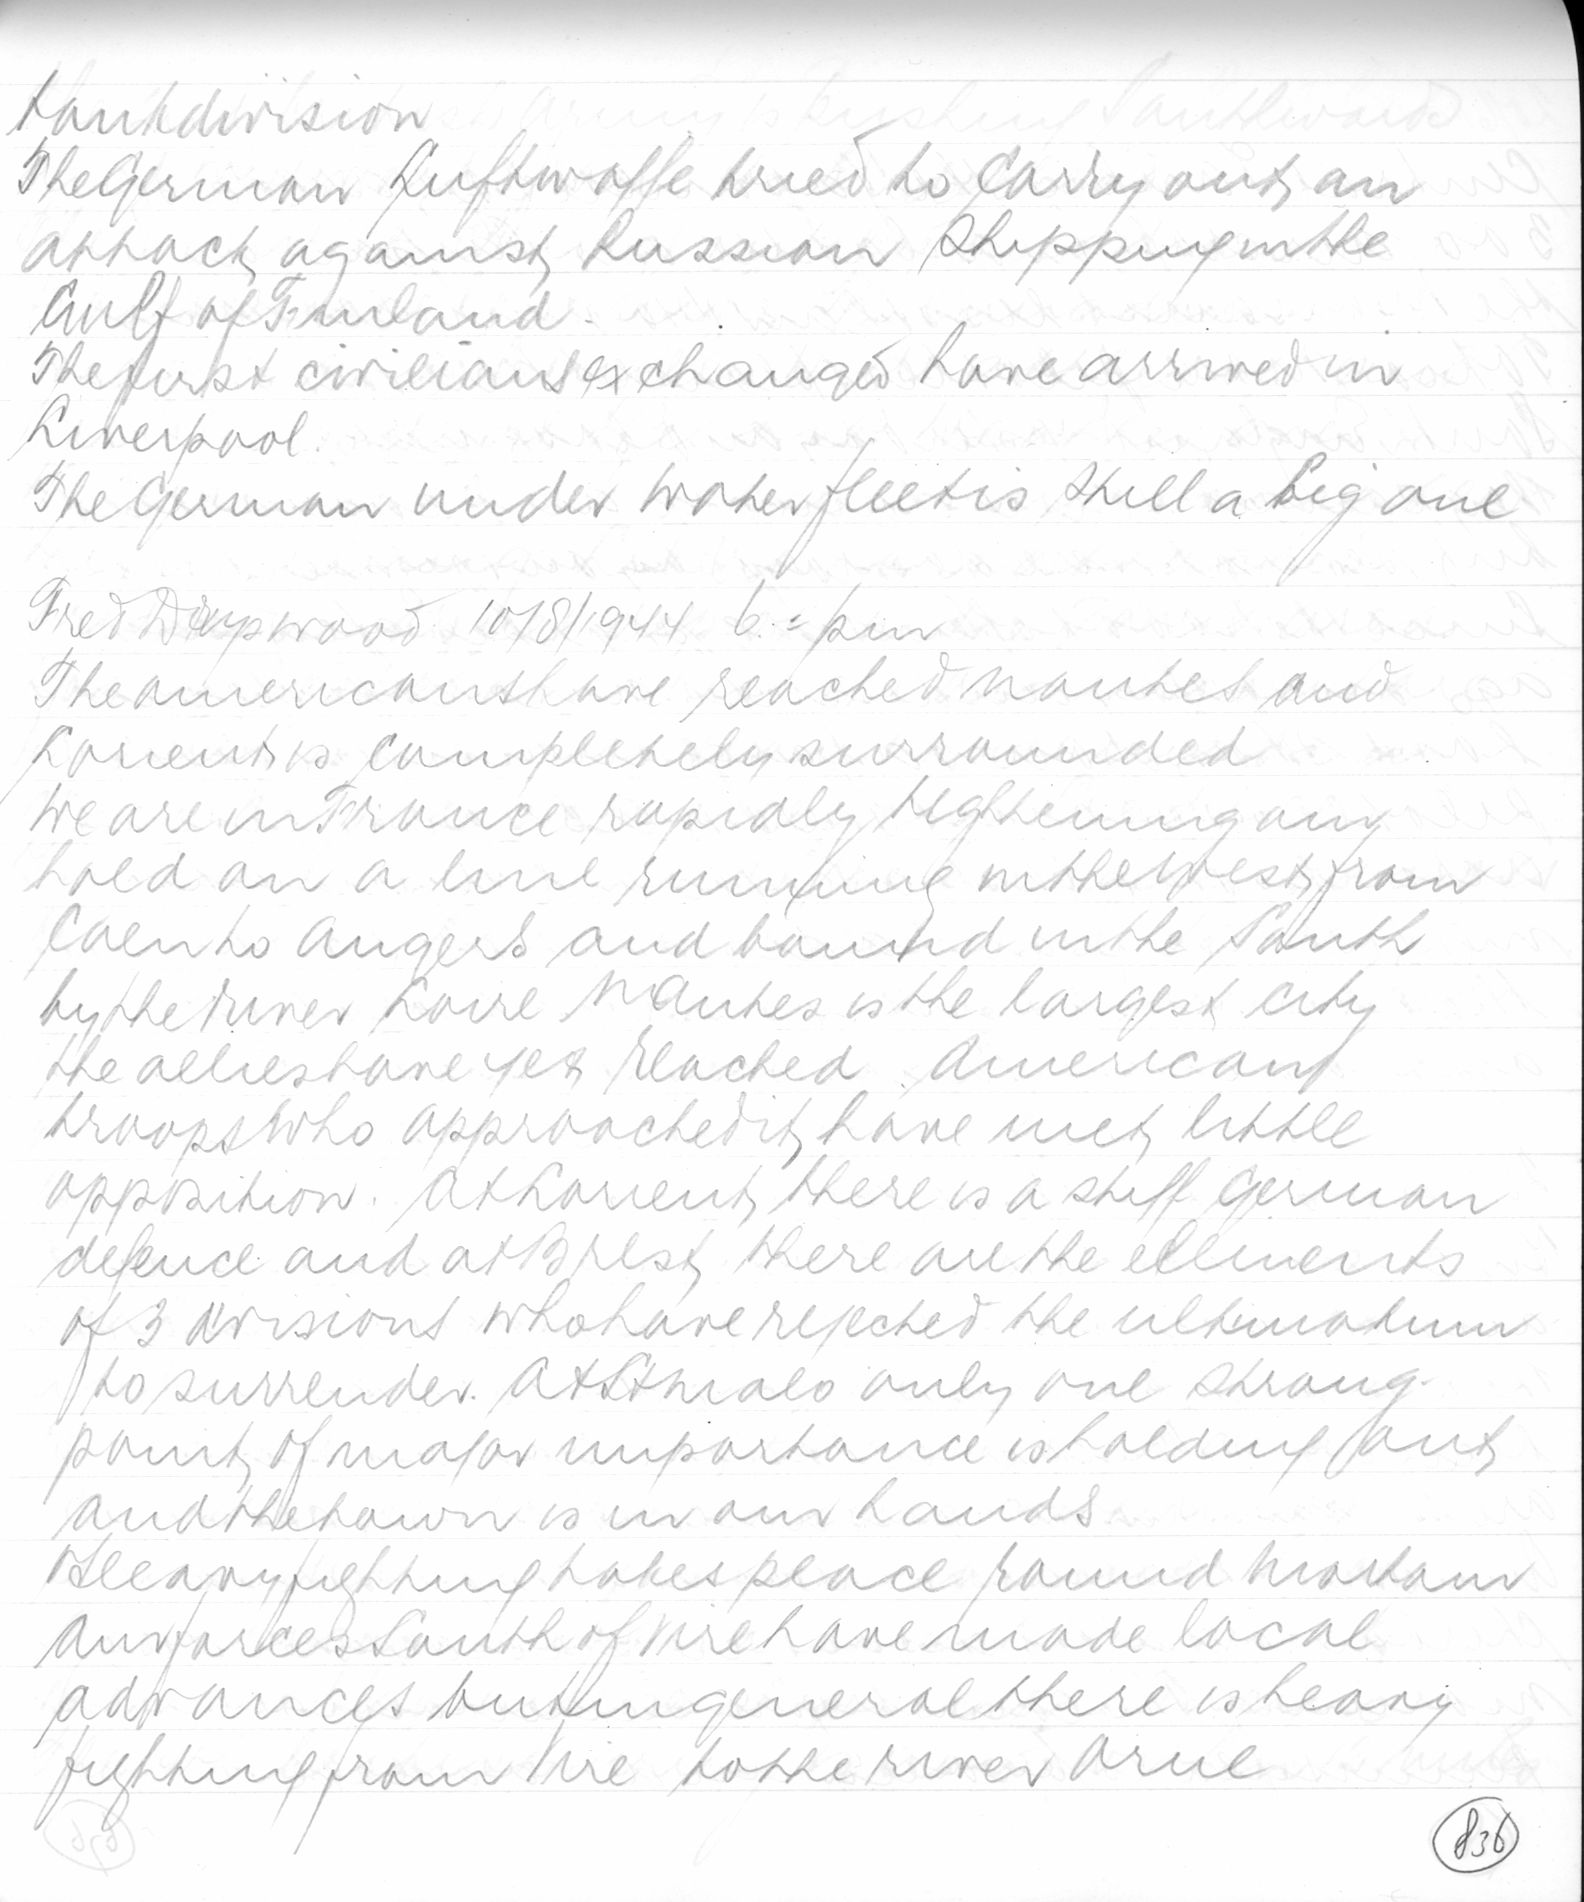 tankdivision
The German Luftwaffe tried to carry out an
attack against Russian Shipping in the
Gulf of Finland.
The first civilians exchanged have arrived in
Liverpool.
The German under water fleet is still a big one
Fred 10/8/1944 6.= pm
The americans have reached Nantes and
Lorient is completely surrounded
We are in France rapidly tightening our
hold on a line running in the West from
Caen to Angers and bound in the South
by the river Loire Nantes is the largest city
the allies have yet reached. American
troops who approached it have met little
opposition. At Lorient there is a stiff German
defence and at Brest there are the elements
of 3 divisions who have rejected the ultimatum
to surrender. At St Malo only one strong-
point of major importance is holding out
and the town is in our hands
Heavy fighting takes place round Mortain
Our forces South of Vire have made local
advances but in general there is heavy
fighting from Vire to the river Orne
836